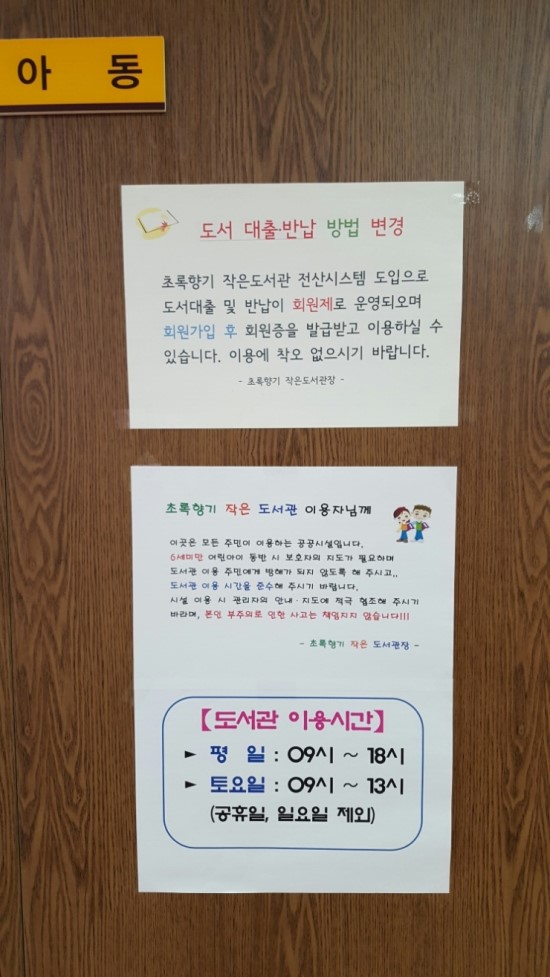 아 동
도서 대출·반납 방법 변경
초록향기 작은도서관 전산시스템 도입으로
도서대출 및 반납이 회원제로 운영되오며
회원가입 후 회원증을 발급받고 이용하실 수
있습니다. 이용에 착오 없으시기 바랍니다.
- 초록향기 작은도서관장 -
초록향기 작은 도서관 이용자님께
이곳은 모든 주민이 이용하는 공공시설입니다.
6세미만 어린아이 동반 시 보호자의 지도가 필요하며
도서관 이용 주민에게 방해가 되지 않도록 해 주시고,,
도서관 이용 시간을 준수해 주시기 바랍니다.
시설 이용 시 관리자의 안내·지도에 적극 협조해 주시기
바라며, 본인 부주의로 인한 사고는 책임지지 않습니다!!!
- 초록향기 작은 도서관장 -
【도서관 이용시간】
► 평 일 : 09시 ~ 18시
► 토요일 : 09시 ~ 13시
(공휴일, 일요일 제외)